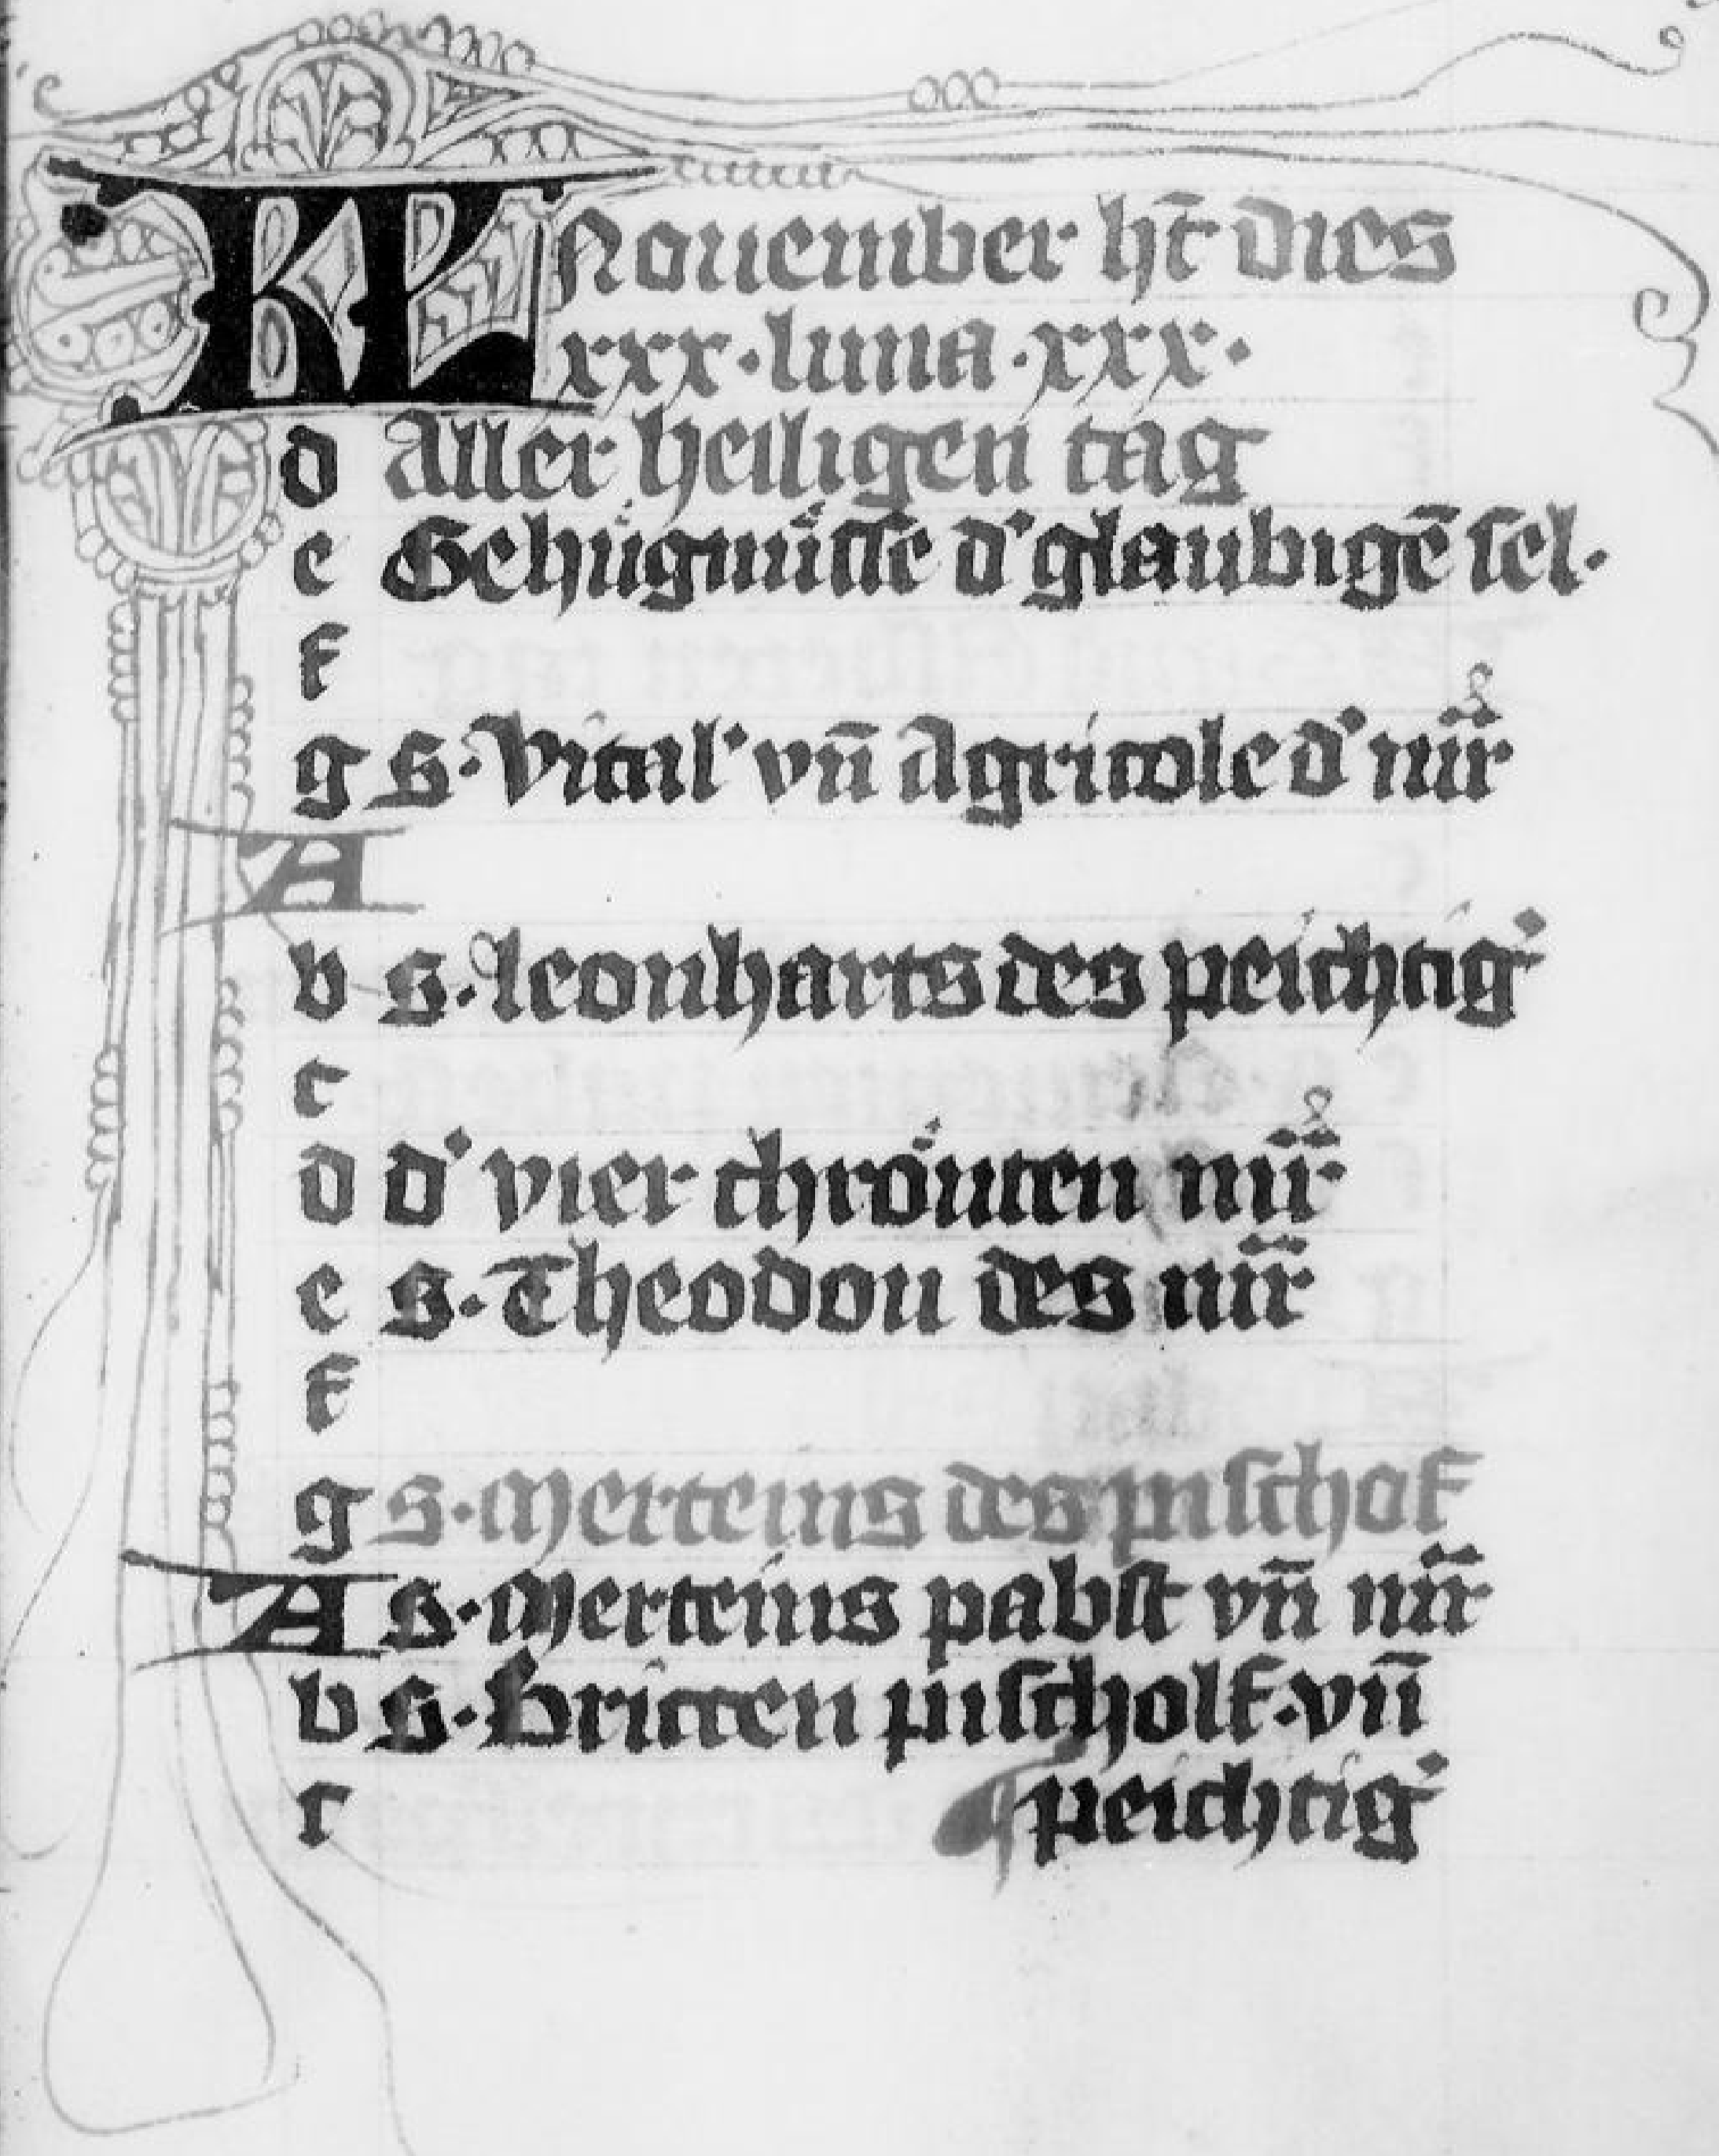 KL November ht̄ dies
xxx · luna · xxx ·
d Aller heiligen tag
e Gehügnüsse d' glaubigē sel·
f
g S · Vital' vn̄ Agricole d' mr̄
A
b S · leonharts des peichtig'
c
d d' vier chrönten mr̄
e S · Theodon des mr̄
f
g S · Merteins des pischof
A S · Merteins pabst vn̄ mr̄
b S · Britten pischolf · vn̄
c peichtig'